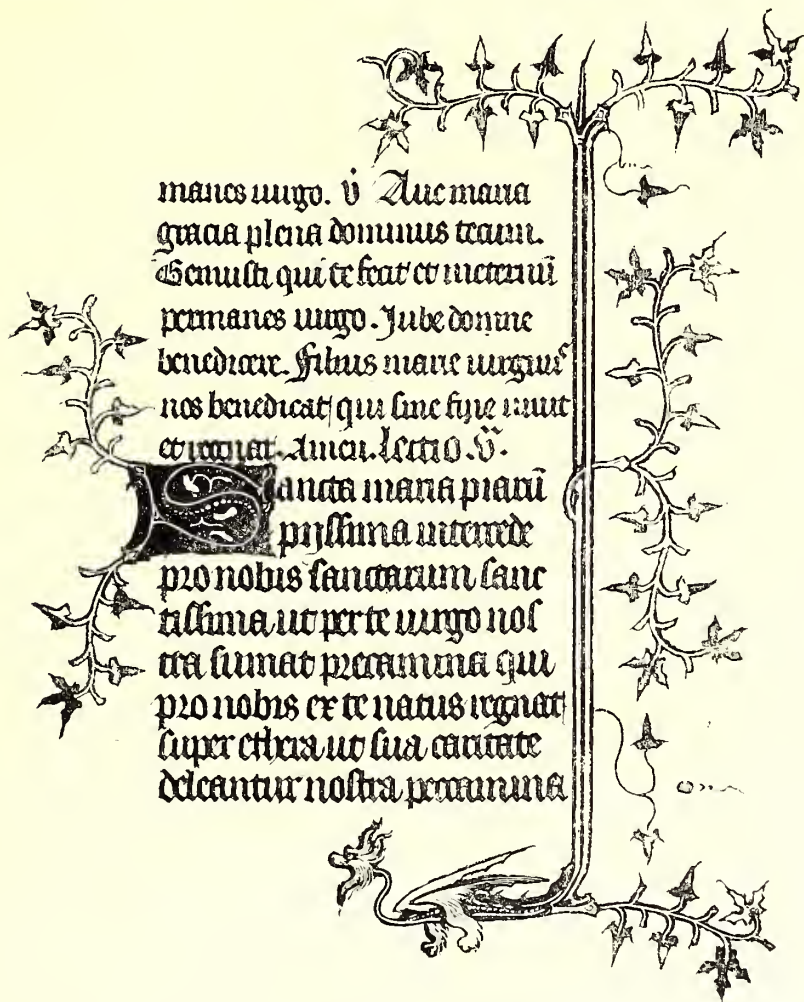 manes uirgo. v̓ Aue maria
gracia plena dominus tecum.
Genuisti qui te fecit et ineternū
permanes uirgo. Jube domine
benedicere. Filius marie uirginis
nos benedicat qui sine fine uiuit
et regnat. Amen. Lectio .v̄.
Sancta maria piarū
pijssima intercede
pro nobis sanctarum sanc
tissima ut per te uirgo nos
tra sumat precamina qui
pro nobis ex te natus regnat
super ethera ut sua caritate
deleantur nostra peccamina